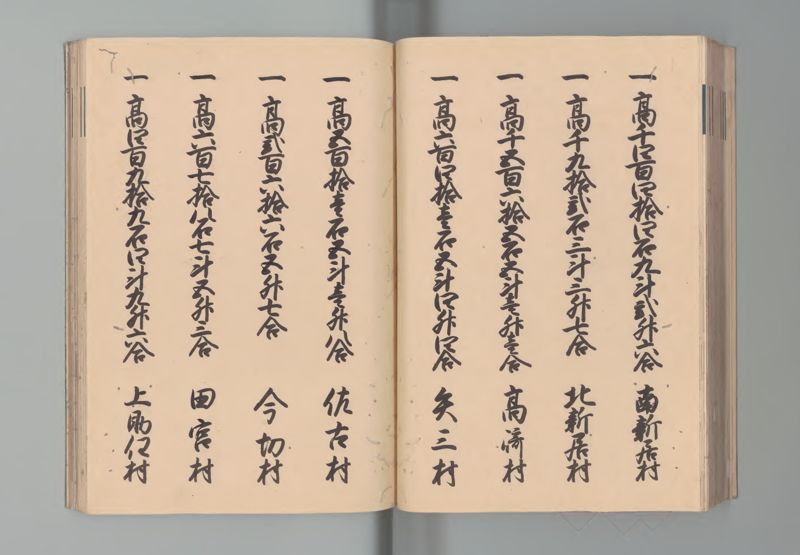 一 高千四百四拾四石九斗弐升六合 南新居村
一 高千九拾弐石三斗三升七合 北新居村
一 高千五百六拾五石五斗壱升壱合 高崎村
一 高六百四拾壱石五斗四升四合 矢三村
一 高五百拾壱石五斗壱升八合 佐古村
一 高弐百六拾六石五升七合 今切村
一 高六百七拾八石七斗五升三合 田宮村
一 高四百九拾九石四斗九升六合 上助任村